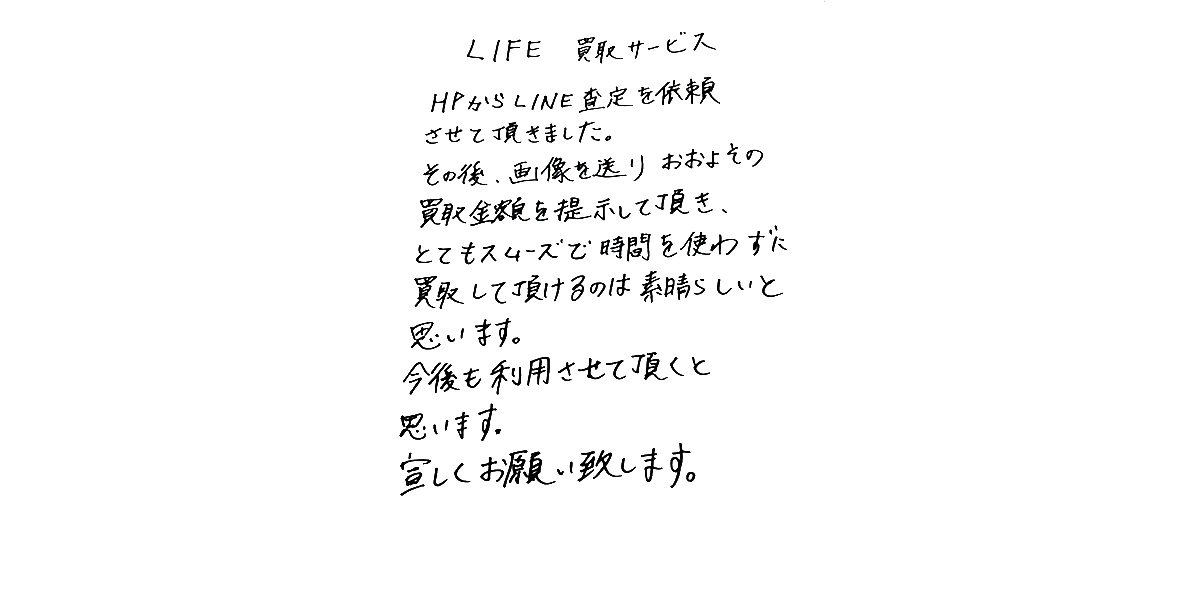 LIFE 買取サービス
HPからLINE査定を依頼
させて頂きました。
その後、画像を送りおおよその
買取金額を提示して頂き、
とてもスムーズで時間を使わずに
買取して頂けるのは素晴らしいと
思います。
今後も利用させて頂くと
思います。
宜しくお願い致します。